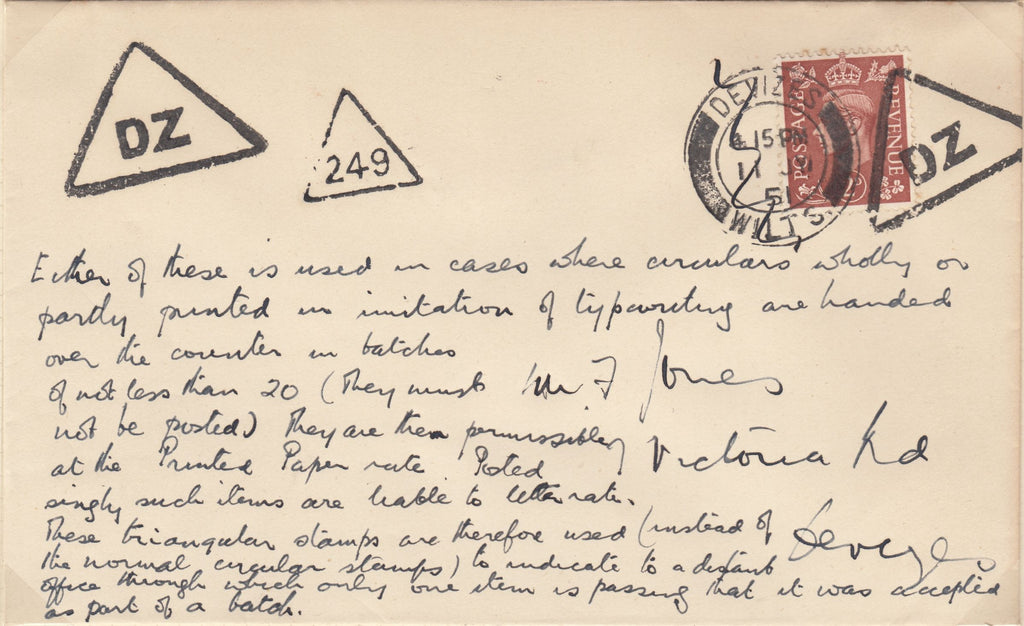 DZ
249
DEVIZES
WILTS
POSTAGE
REVENUE
DZ
Either of these is used in cases where circulars wholly or
partly printed in imitation of typwriting are handed
over the counter in batches
of not less than 20 (They must
not be posted) They are then permissible
at the Printed Paper rate Posted
singly such items are liable to letter rate.
These triangular stamps are therefore used (instead of
the normal circular stamps) to indicate to a distant
office through which only one item is passing that it was accepted
as part of a batch.
Mr F Jones
Victoria Rd
Devizes